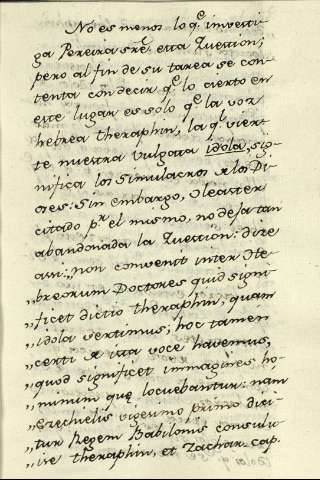 No es menos lo q.e investi-
ga Pereira sre. esta Question;
pero al fin de su tarea se con-
tenta con decir q.e lo cierto en
este lugar es solo q.e la voz
hebrea theraphin, la q.l vier-
te nuestra Vulgata idola, sig-
nifica los Simulacros de los Di-
oses: Sin embargo, Oleaster
citado p.r el mismo, no deja tan
abandonada la Question: dice
assi: „non convenit inter He-
„breorum Doctores quid signi-
„ficet dictio theraphin, quam
„idola vertimus; hoc tamen
„certi de ista voce havemus,
„quod significet immagines ho-
„minum quę locuebantur: nám
„Ezechielis vigesimo primo dici-
„tur Regem Babilonis consulu-
„ise theraphin, et Zachar. cap.